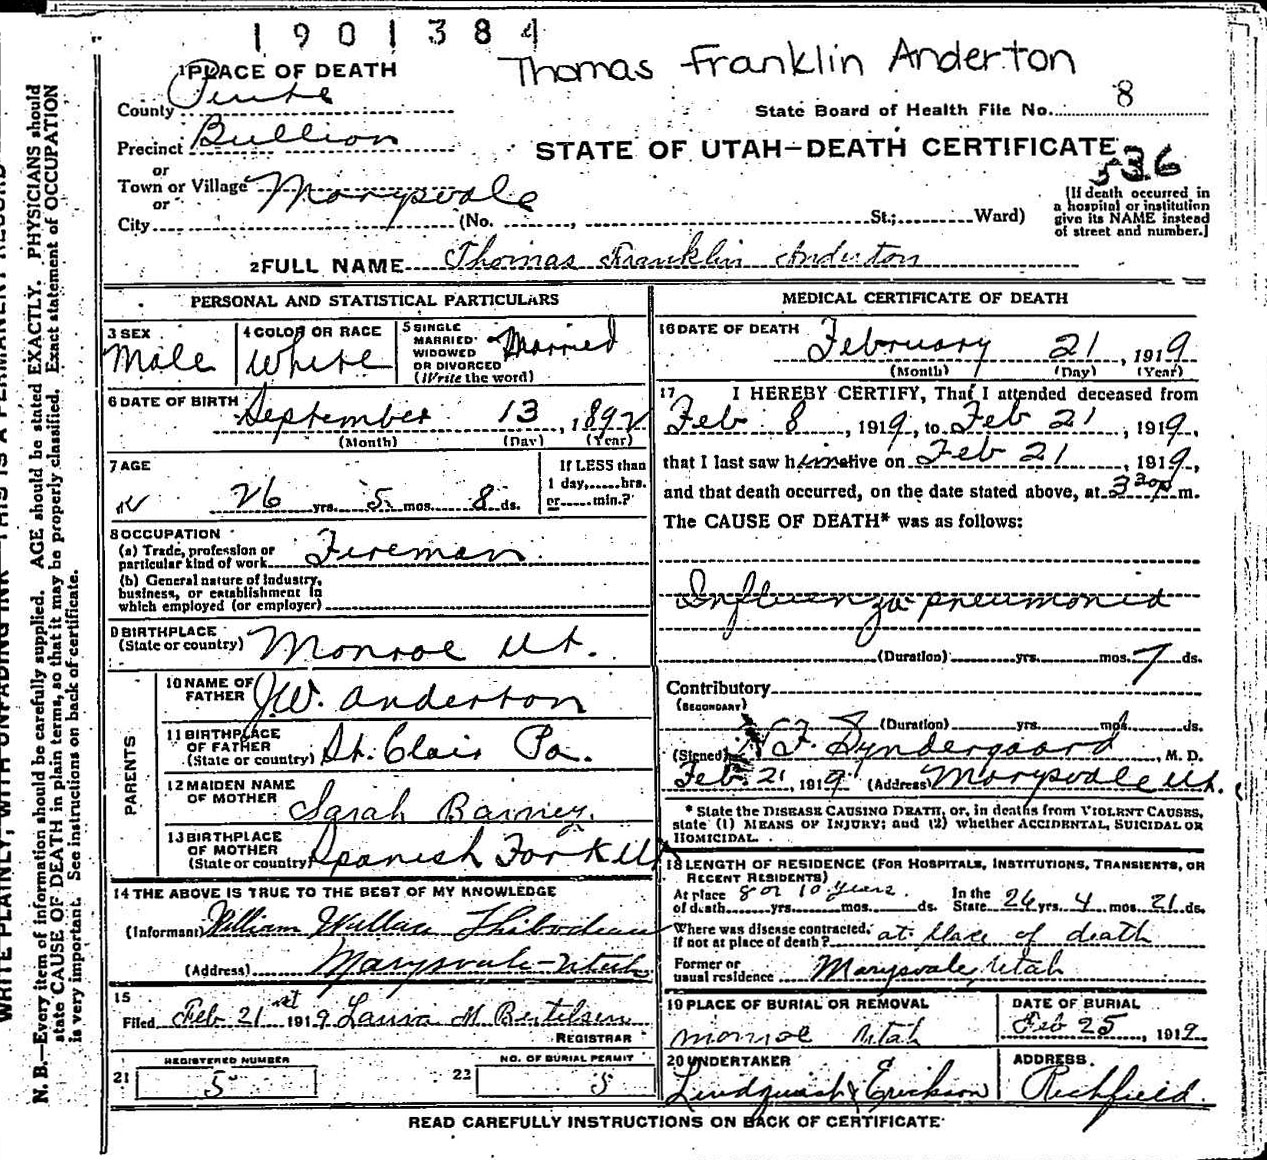 1901384
Thomas Franklin Anderton
1 PLACE OF DEATH
County Piute
State Board of Health File No. 8
Precinct Bullion
STATE OF UTAH—DEATH CERTIFICATE
536
or
Town or Village Marysvale
or
City (No. , St.; Ward)
[If death occurred in
a hospital or institution
give its NAME instead
of street and number.]
2 FULL NAME Thomas Franklin Anderton
PERSONAL AND STATISTICAL PARTICULARS
3 SEX Male
4 COLOR OR RACE White
5 SINGLE
MARRIED
WIDOWED
OR DIVORCED
(Write the word) Married
6 DATE OF BIRTH September 13, 1892
(Month) (Day) (Year)
7 AGE
26 yrs. 5 mos. 8 ds.
If LESS than
1 day, hrs.
or min.?
8 OCCUPATION
(a) Trade, profession or
particular kind of work Fireman
(b) General nature of industry,
business, or establishment in
which employed (or employer)
9 BIRTHPLACE
(State or country) Monroe Ut.
PARENTS
10 NAME OF
FATHER J.W. Anderton
11 BIRTHPLACE
OF FATHER
(State or country) St. Clair Pa.
12 MAIDEN NAME
OF MOTHER Sarah Barney
13 BIRTHPLACE
OF MOTHER
(State or country) Spanish Fork Ut
14 THE ABOVE IS TRUE TO THE BEST OF MY KNOWLEDGE
(Informant) William Wallace Thibodeau
(Address) Marysvale—Utah
15
Filed Feb 21st 1919 Laura M Bertelsen
REGISTRAR
REGISTERED NUMBER
21 5
NO. OF BURIAL PERMIT
22 5
MEDICAL CERTIFICATE OF DEATH
16 DATE OF DEATH February 21, 1919
(Month) (Day) (Year)
17 I HEREBY CERTIFY, That I attended deceased from
Feb 8, 1919, to Feb 21, 1919,
that I last saw him alive on Feb 21, 1919,
and that death occurred, on the date stated above, at 3 30 p m.
The CAUSE OF DEATH* was as follows:
Influenza pneumonia
(Duration) yrs. mos. 7 ds.
Contributory
(SECONDARY)
(Duration) yrs. mos. ds.
(Signed) Syndergaard, M. D.
Feb. 21, 1919 (Address) Marysvale Ut.
* State the DISEASE CAUSING DEATH, or, in deaths from VIOLENT CAUSES,
state (1) MEANS OF INJURY; and (2) whether ACCIDENTAL, SUICIDAL OR
HOMICIDAL.
18 LENGTH OF RESIDENCE (FOR HOSPITALS, INSTITUTIONS, TRANSIENTS, OR
RECENT RESIDENTS)
At place
of death 8 or 10 years. yrs. mos. ds. In the
State 26 yrs. 4 mos. 21 ds.
Where was disease contracted,
if not at place of death? at place of death
Former or
usual residence Marysvale, Utah
19 PLACE OF BURIAL OR REMOVAL
Monroe Utah
DATE OF BURIAL
Feb 25, 1919
20 UNDERTAKER
Lindquist & Erickson
ADDRESS
Richfield.
READ CAREFULLY INSTRUCTIONS ON BACK OF CERTIFICATE
WRITE PLAINLY, WITH UNFADING INK—THIS IS A PERMANENT RECORD
N. B.—Every item of information should be carefully supplied. AGE should be stated EXACTLY. PHYSICIANS should
state CAUSE OF DEATH in plain terms, so that it may be properly classified. Exact statement of OCCUPATION
is very important. See instructions on back of certificate.